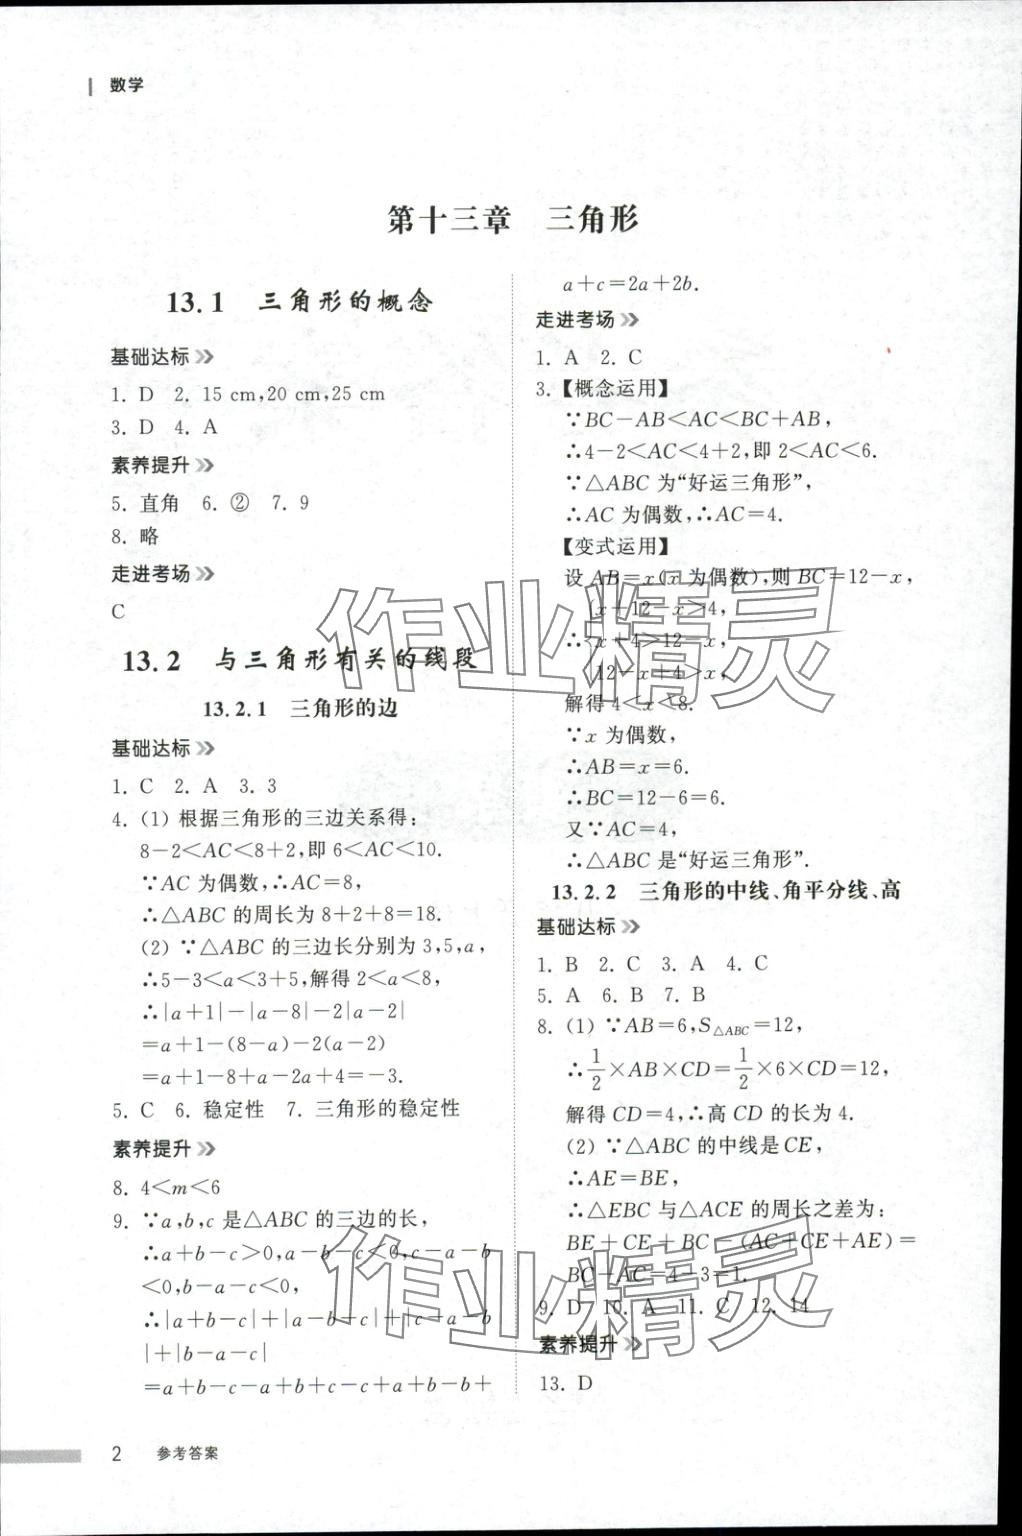 数学
第十三章 三角形
13.1 三角形的概念
基础达标
1. D 2. 15 cm,20 cm,25 cm
3. D 4. A
素养提升
5. 直角 6. ② 7. 9
8. 略
走进考场
C
13.2 与三角形有关的线段
13.2.1 三角形的边
基础达标
1. C 2. A 3. 3
4. (1) 根据三角形的三边关系得:
8-2<AC<8+2,即 6<AC<10.
∵AC 为偶数,∴AC=8,
∴△ABC 的周长为 8+2+8=18.
(2) ∵△ABC 的三边长分别为 3,5,a,
∴5-3<a<3+5,解得 2<a<8,
∴|a+1|-|a-8|-2|a-2|
=a+1-(8-a)-2(a-2)
=a+1-8+a-2a+4=-3.
5. C 6. 稳定性 7. 三角形的稳定性
素养提升
8. 4<m<6
9. ∵a,b,c 是△ABC 的三边的长,
∴a+b-c>0,a-b-c<0,c-a-b
<0,b-a-c<0,
∴|a+b-c|+|a-b-c|+|c-a-b
|+|b-a-c|
=a+b-c-a+b+c-c+a+b-b+
a+c=2a+2b.
走进考场
1. A 2. C
3. 【概念运用】
∵BC-AB<AC<BC+AB,
∴4-2<AC<4+2,即 2<AC<6.
∵△ABC 为“好运三角形”,
∴AC 为偶数,∴AC=4.
【变式运用】
设 AB=x(x 为偶数),则 BC=12-x,
x+12-x>4,
∴ x+4>12-x,
12-x+4>x,
解得 4<x<8.
∵x 为偶数,
∴AB=x=6.
∴BC=12-6=6.
又∵AC=4,
∴△ABC 是“好运三角形”.
13.2.2 三角形的中线、角平分线、高
基础达标
1. B 2. C 3. A 4. C
5. A 6. B 7. B
8. (1) ∵AB=6,S△ABC=12,
∴1/2×AB×CD=1/2×6×CD=12,
解得 CD=4,∴高 CD 的长为 4.
(2) ∵△ABC 的中线是CE,
∴AE=BE,
∴△EBC 与△ACE 的周长之差为:
BE+CE+BC-(AC+CE+AE)=
BC-AC=4-3=1.
9. D 10. A 11. C 12. 14
素养提升
13. D
2 参考答案
作业精灵
作业精灵